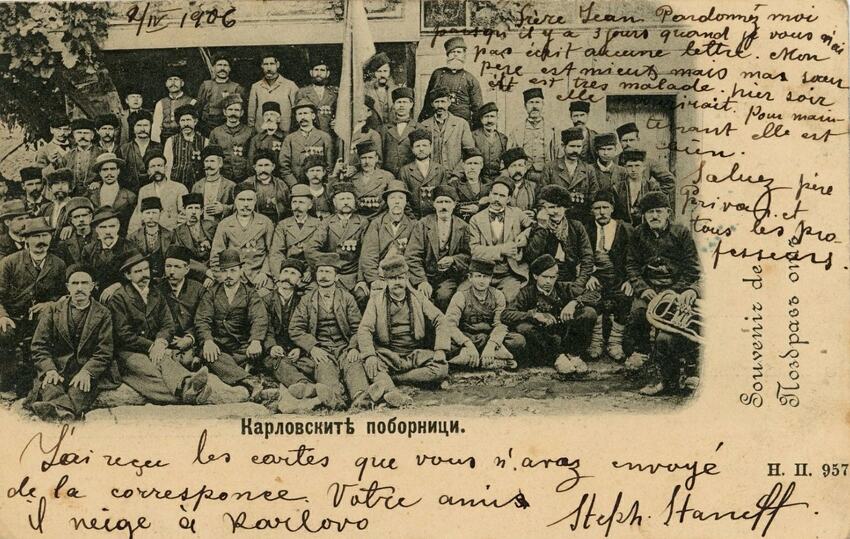 9/IV 1906
Frère Jean Pardonnez moi
parsqu'il y a 3 jours quand je vous n'ai
pas écrit aucune lettre. Mon
père est mieux mais mas sœur
est tres malade. hier soir
elle mourirait. Pour main-
tenant elle est
bien.
Saluez père
Privat et
tous les pro-
fesseurs.
Souvenir de
Поздравъ отъ
Карловскитѣ поборници.
J'ai reçu les cartes que vous n'avaz envoyé
de la corresponce. Votre amis
il neige à Karlovo
Steph. Staneff.
Н. П. 957